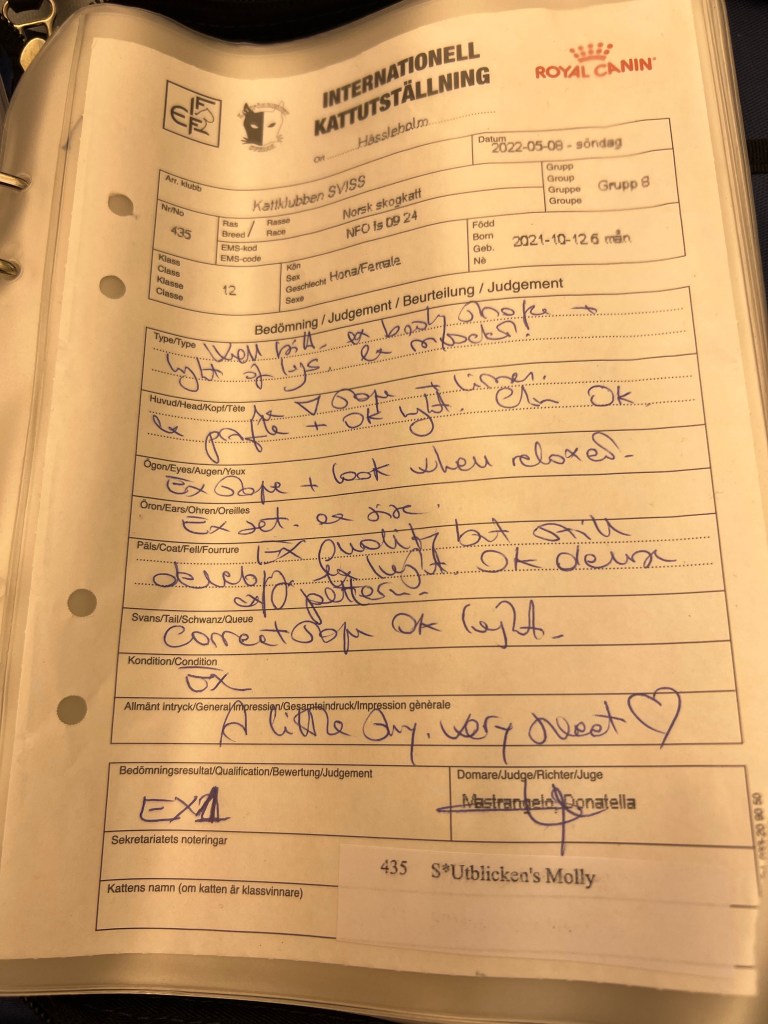 INTERNATIONELL
KATTUTSTÄLLNING
ROYAL CANIN
FIFe
Ort Hässleholm
Datum 2022-05-08 - söndag
Arr. klubb Kattklubben SVISS
Grupp Group Gruppe Groupe Grupp 8
Nr/No 435
Ras Breed / Rasse Race Norsk skogkatt
EMS-kod EMS-code NFO ls 09 24
Född Born Geb. Né 2021-10-12 6 mån
Klass Class Klasse Classe 12
Kön Sex Geschlecht Sexe Hona/Female
Bedömning / Judgement / Beurteilung / Judgement
Type/Type Well bilt. ex body shape +
lght of legs. ex
Huvud/Head/Kopf/Tête shape
ex profile + OK lght. Chin OK.
Ögon/Eyes/Augen/Yeux
Ex shape + look when relaxed.
Öron/Ears/Ohren/Oreilles
Ex set. ex size.
Päls/Coat/Fell/Fourrure Ex quality but still
develop lght. OK
pattern.
Svans/Tail/Schwanz/Queue
Correct shape OK lght.
Kondition/Condition
ex
Allmänt intryck/General/impression/Gesamteindruck/Impression gènèrale
A little shy. very sweet ♡
Bedömningsresultat/Qualification/Bewertung/Judgement
EX1
Domare/Judge/Richter/Juge
Mastrangelo, Donatella
Sekretariatets noteringar
435 S*Utblicken's Molly
Kattens namn (om katten är klassvinnare)